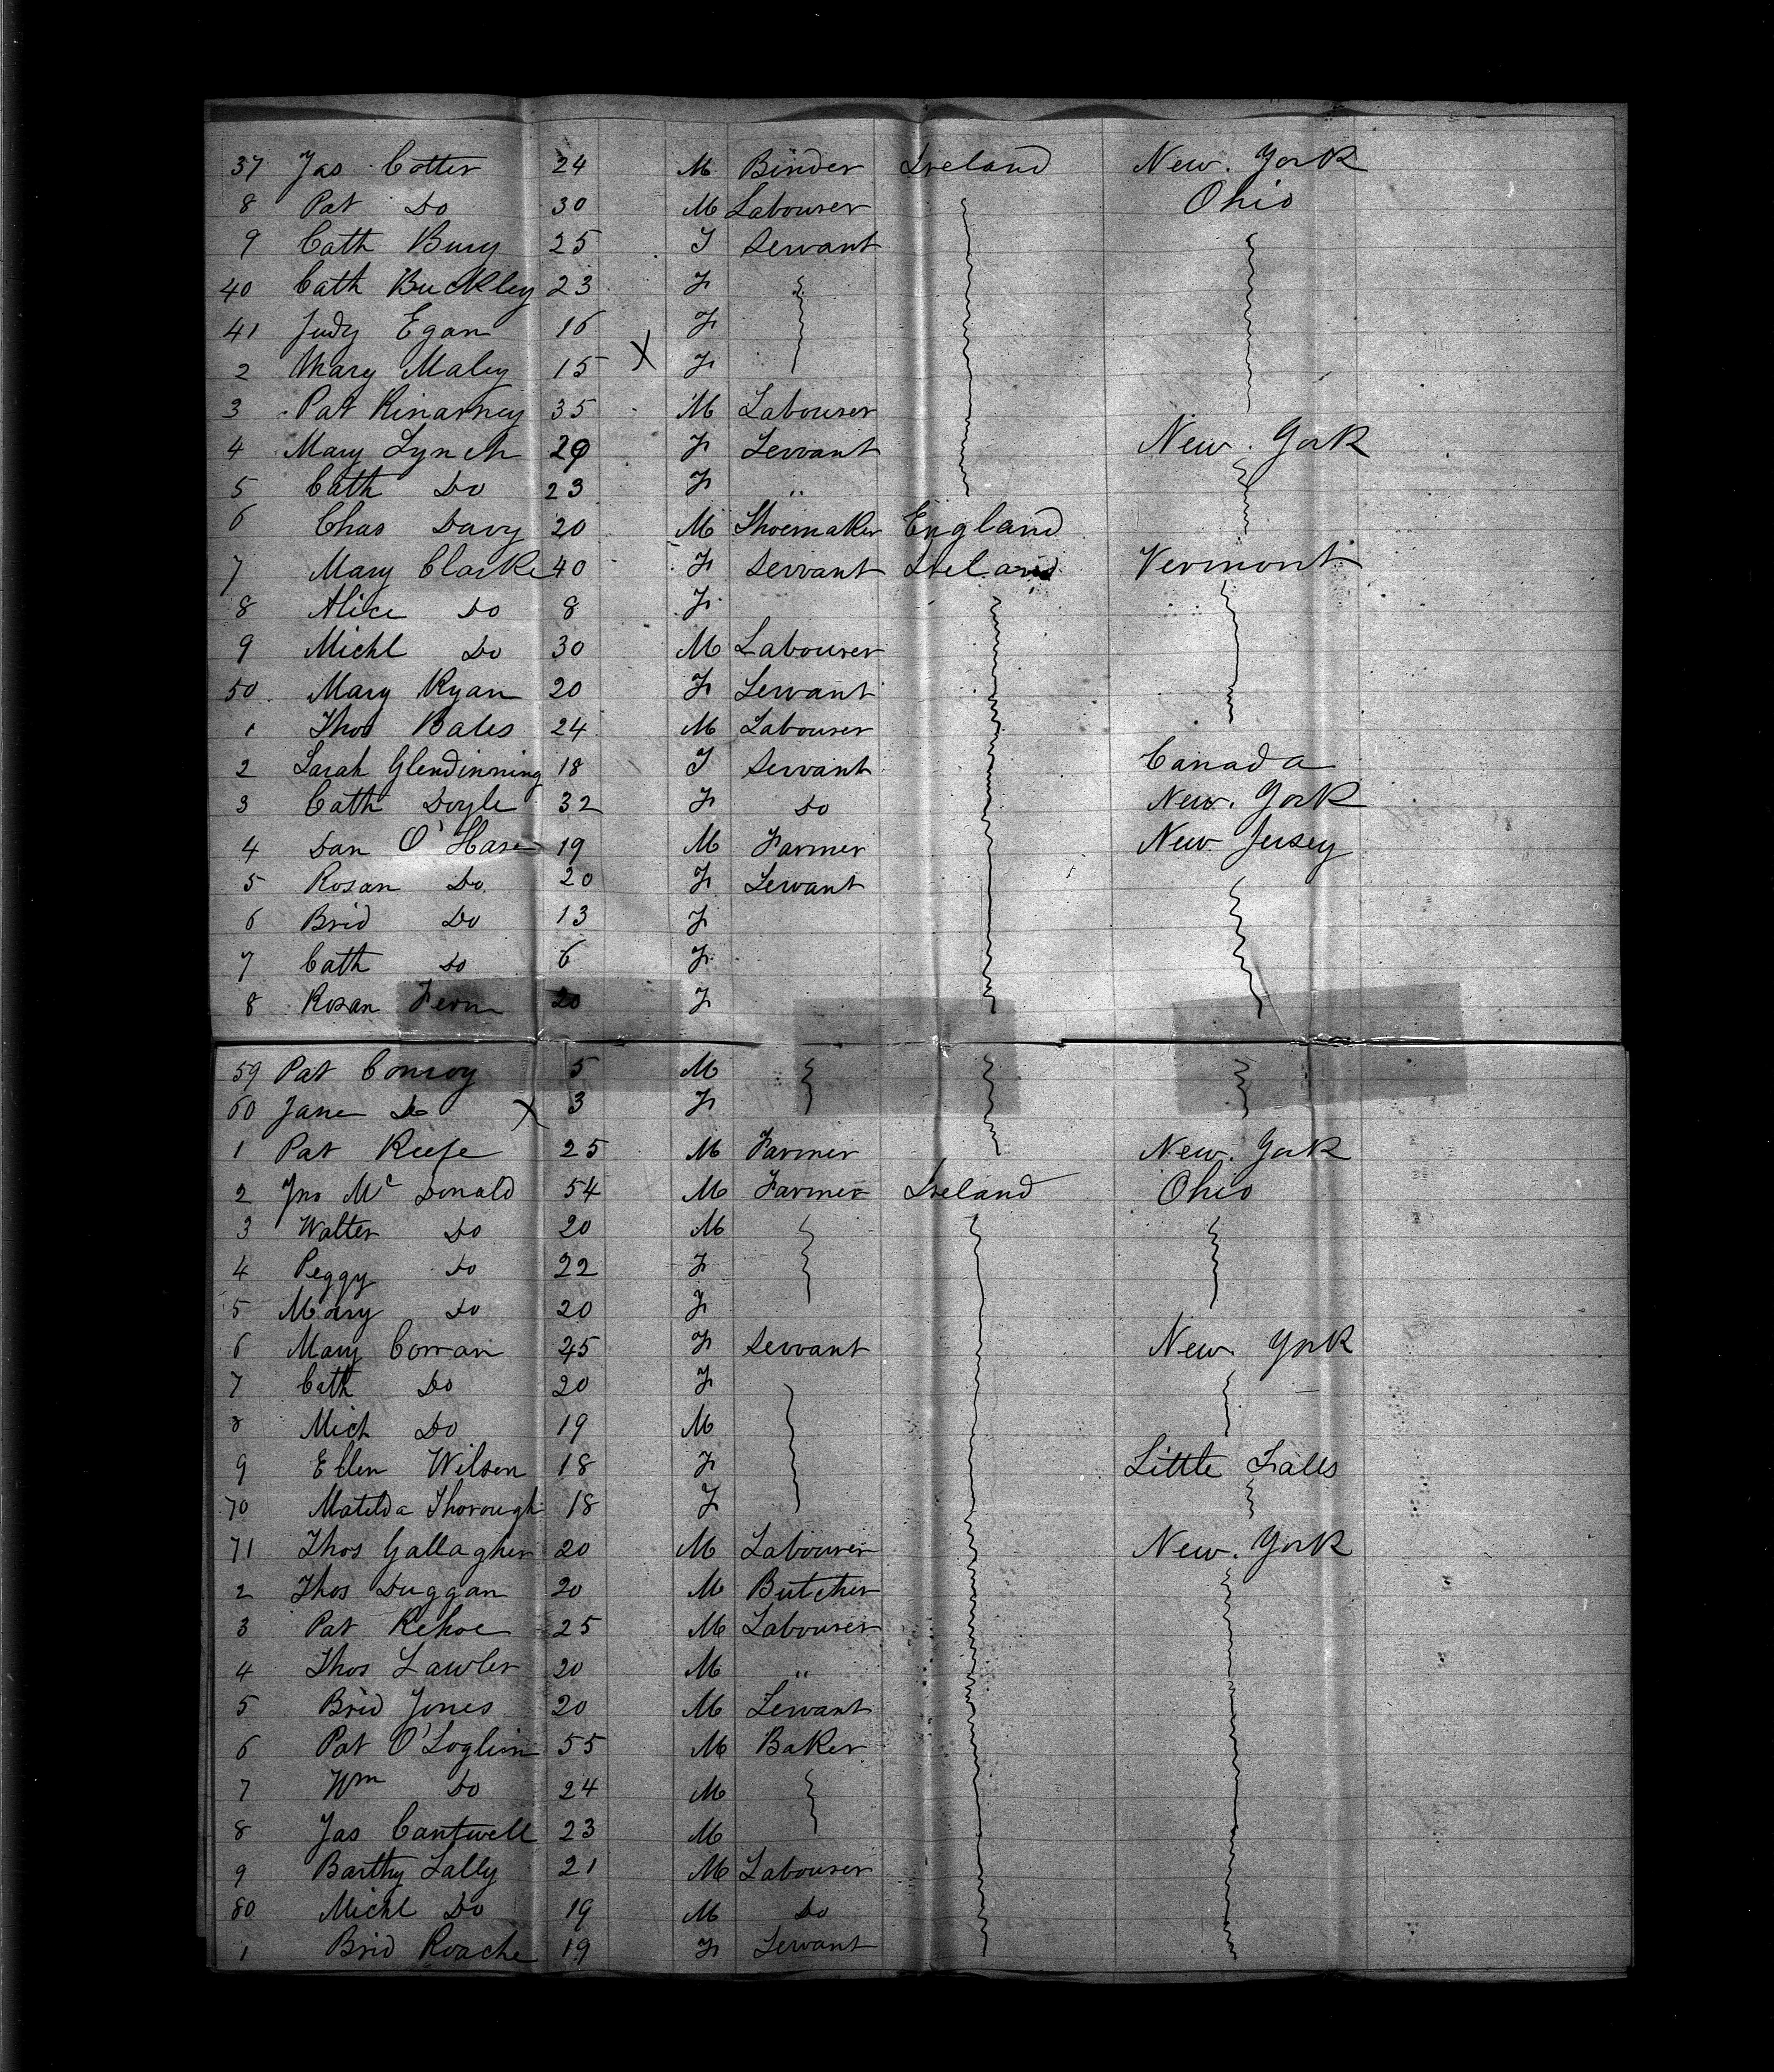 37 Jas Cotter 24 M Binder Ireland New York
8 Pat Do 30 M Labourer Ohio
9 Cath Bury 25 F Servant
40 Cath Buckley 23 F
41 Judy Egan 16 F
2 Mary Maley 15 X F
3 Pat Kinarney 35 M Labourer
4 Mary Lynch 29 F Servant New York
5 Cath Do 23 F "
6 Chas Davy 20 M Shoemaker England
7 Mary Clarke 40 F Servant Ireland Vermont
8 Alice Do 8 F
9 Michl Do 30 M Labourer
50 Mary Ryan 20 F Servant
1 Thos Bates 24 M Labourer
2 Sarah Glendinning 18 F Servant Canada
3 Cath Doyle 32 F Do New York
4 Dan O'Hare 19 M Farmer New Jersey
5 Rosan Do 20 F Servant
6 Brid Do 13 F
7 Cath Do 6 F
8 Rosan 20 F
59 Pat Conroy 5 M
60 Jane Do X 3 F
1 Pat Keefe 25 M Farmer New York
2 Jno Mc Donald 54 M Farmer Ireland Ohio
3 Walter Do 20 M
4 Peggy Do 22 F
5 Mary Do 20 F
6 Mary Corran 25 F Servant New York
7 Cath Do 20 F
8 Mich Do 19 M
9 Ellen Wilson 18 F Little Falls
70 Matilda Thorough 18 F
71 Thos Gallagher 20 M Labourer New York
2 Thos Duggan 20 M Butcher
3 Pat Kehoe 25 M Labourer
4 Thos Lawler 20 M "
5 Brid Jones 20 M Servant
6 Pat O'Loglin 55 M Baker
7 Wm Do 24 M
8 Jas Cantwell 23 M
9 Barthy Lally 21 M Labourer
80 Michl Do 19 M Do
1 Brid Roache 19 F Servant